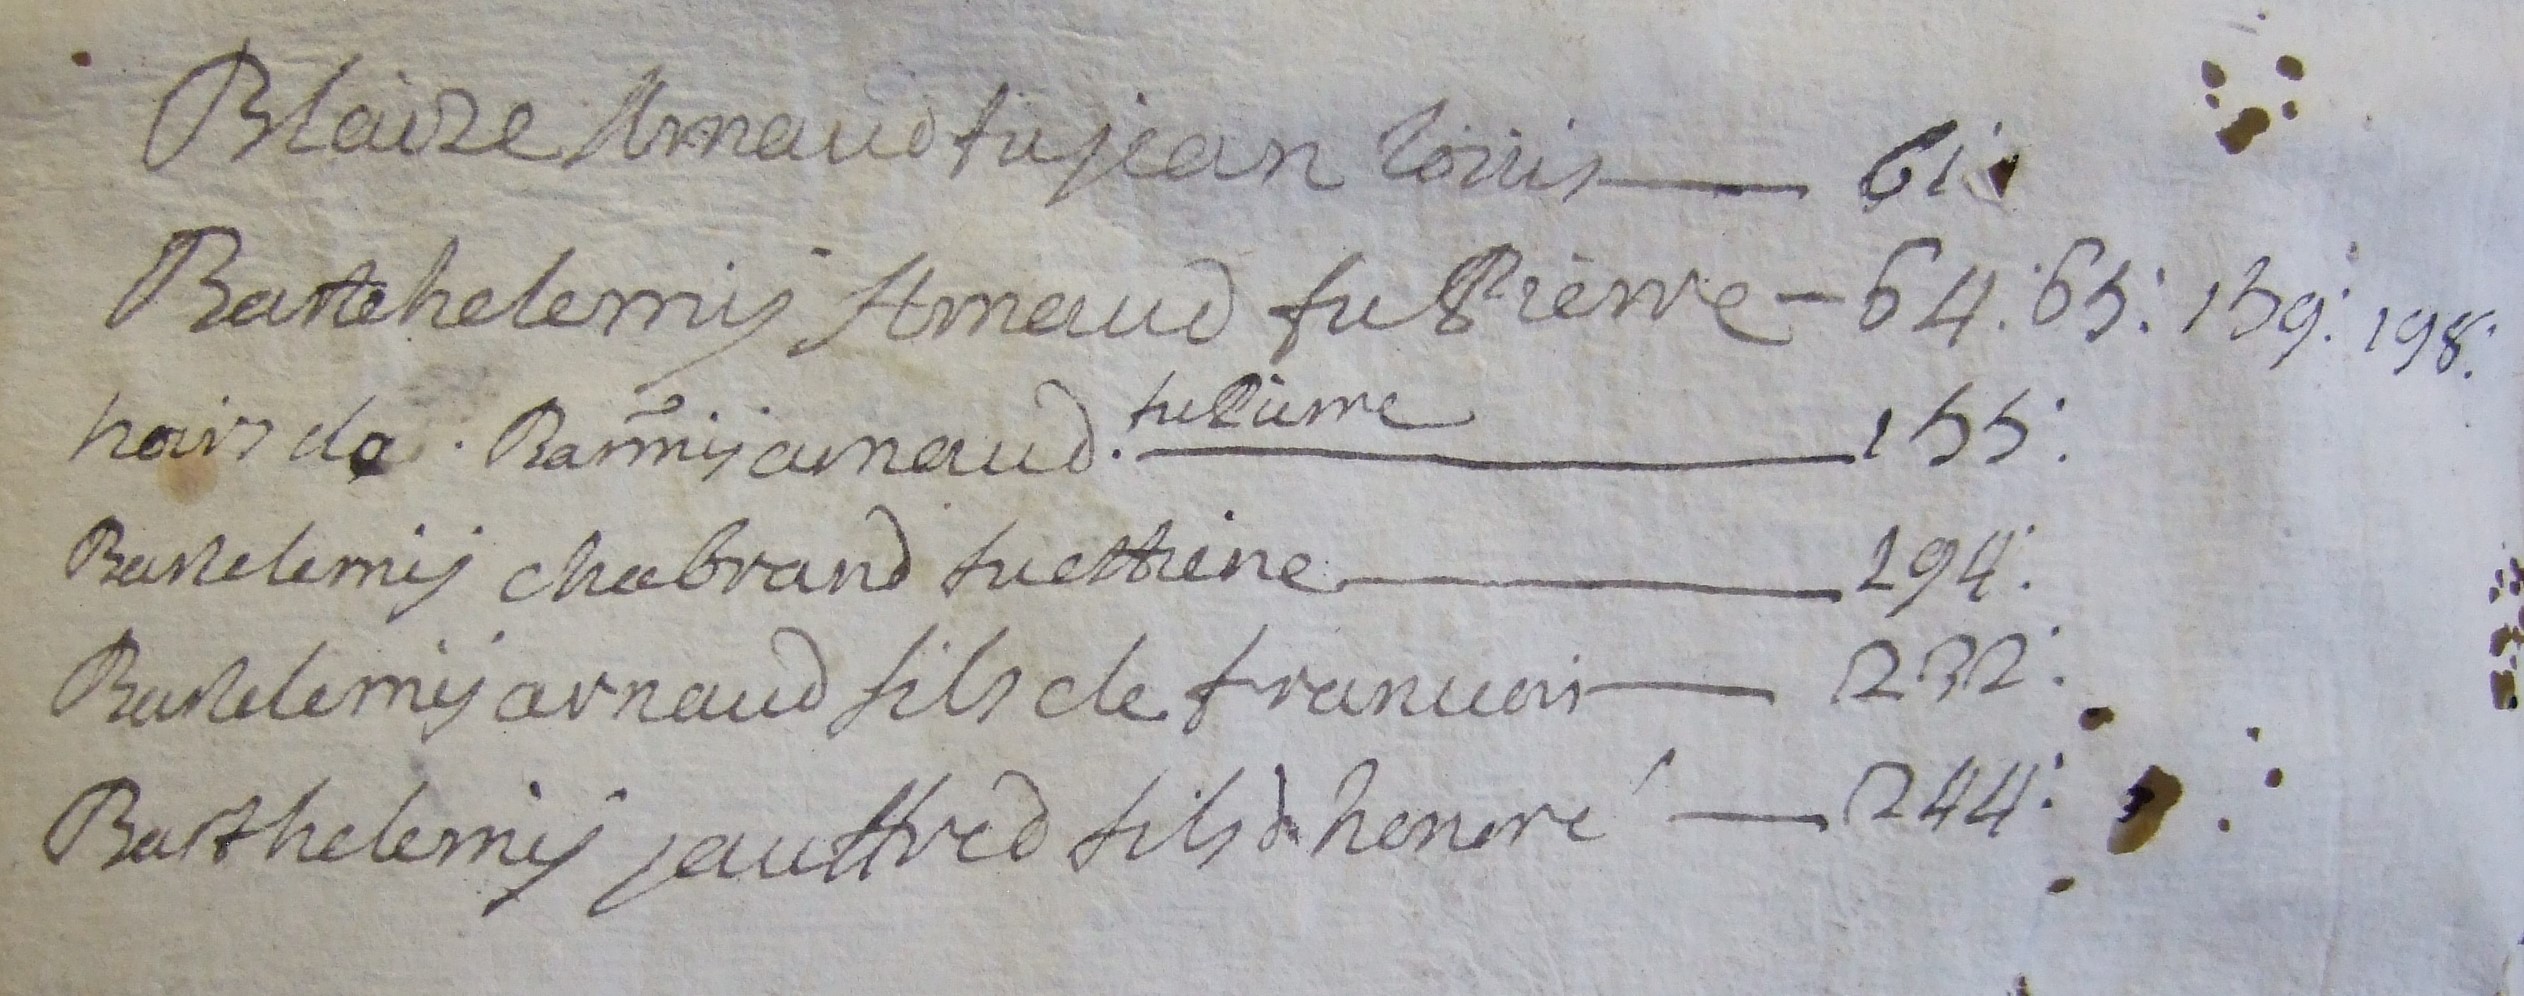 Blaize Arnaud fu jean loüis — 61
Barthelemy Arnaud fu Pierre — 64. 65: 159: 198:
hoirs de . Barmy arnaud. fu Pierre — 155:
Bartelemy chabrand fu ettiene — 194:
Bartelemy arnaud fils de francois — 232:
Barthelemy jauffred fils d honoré — 244: